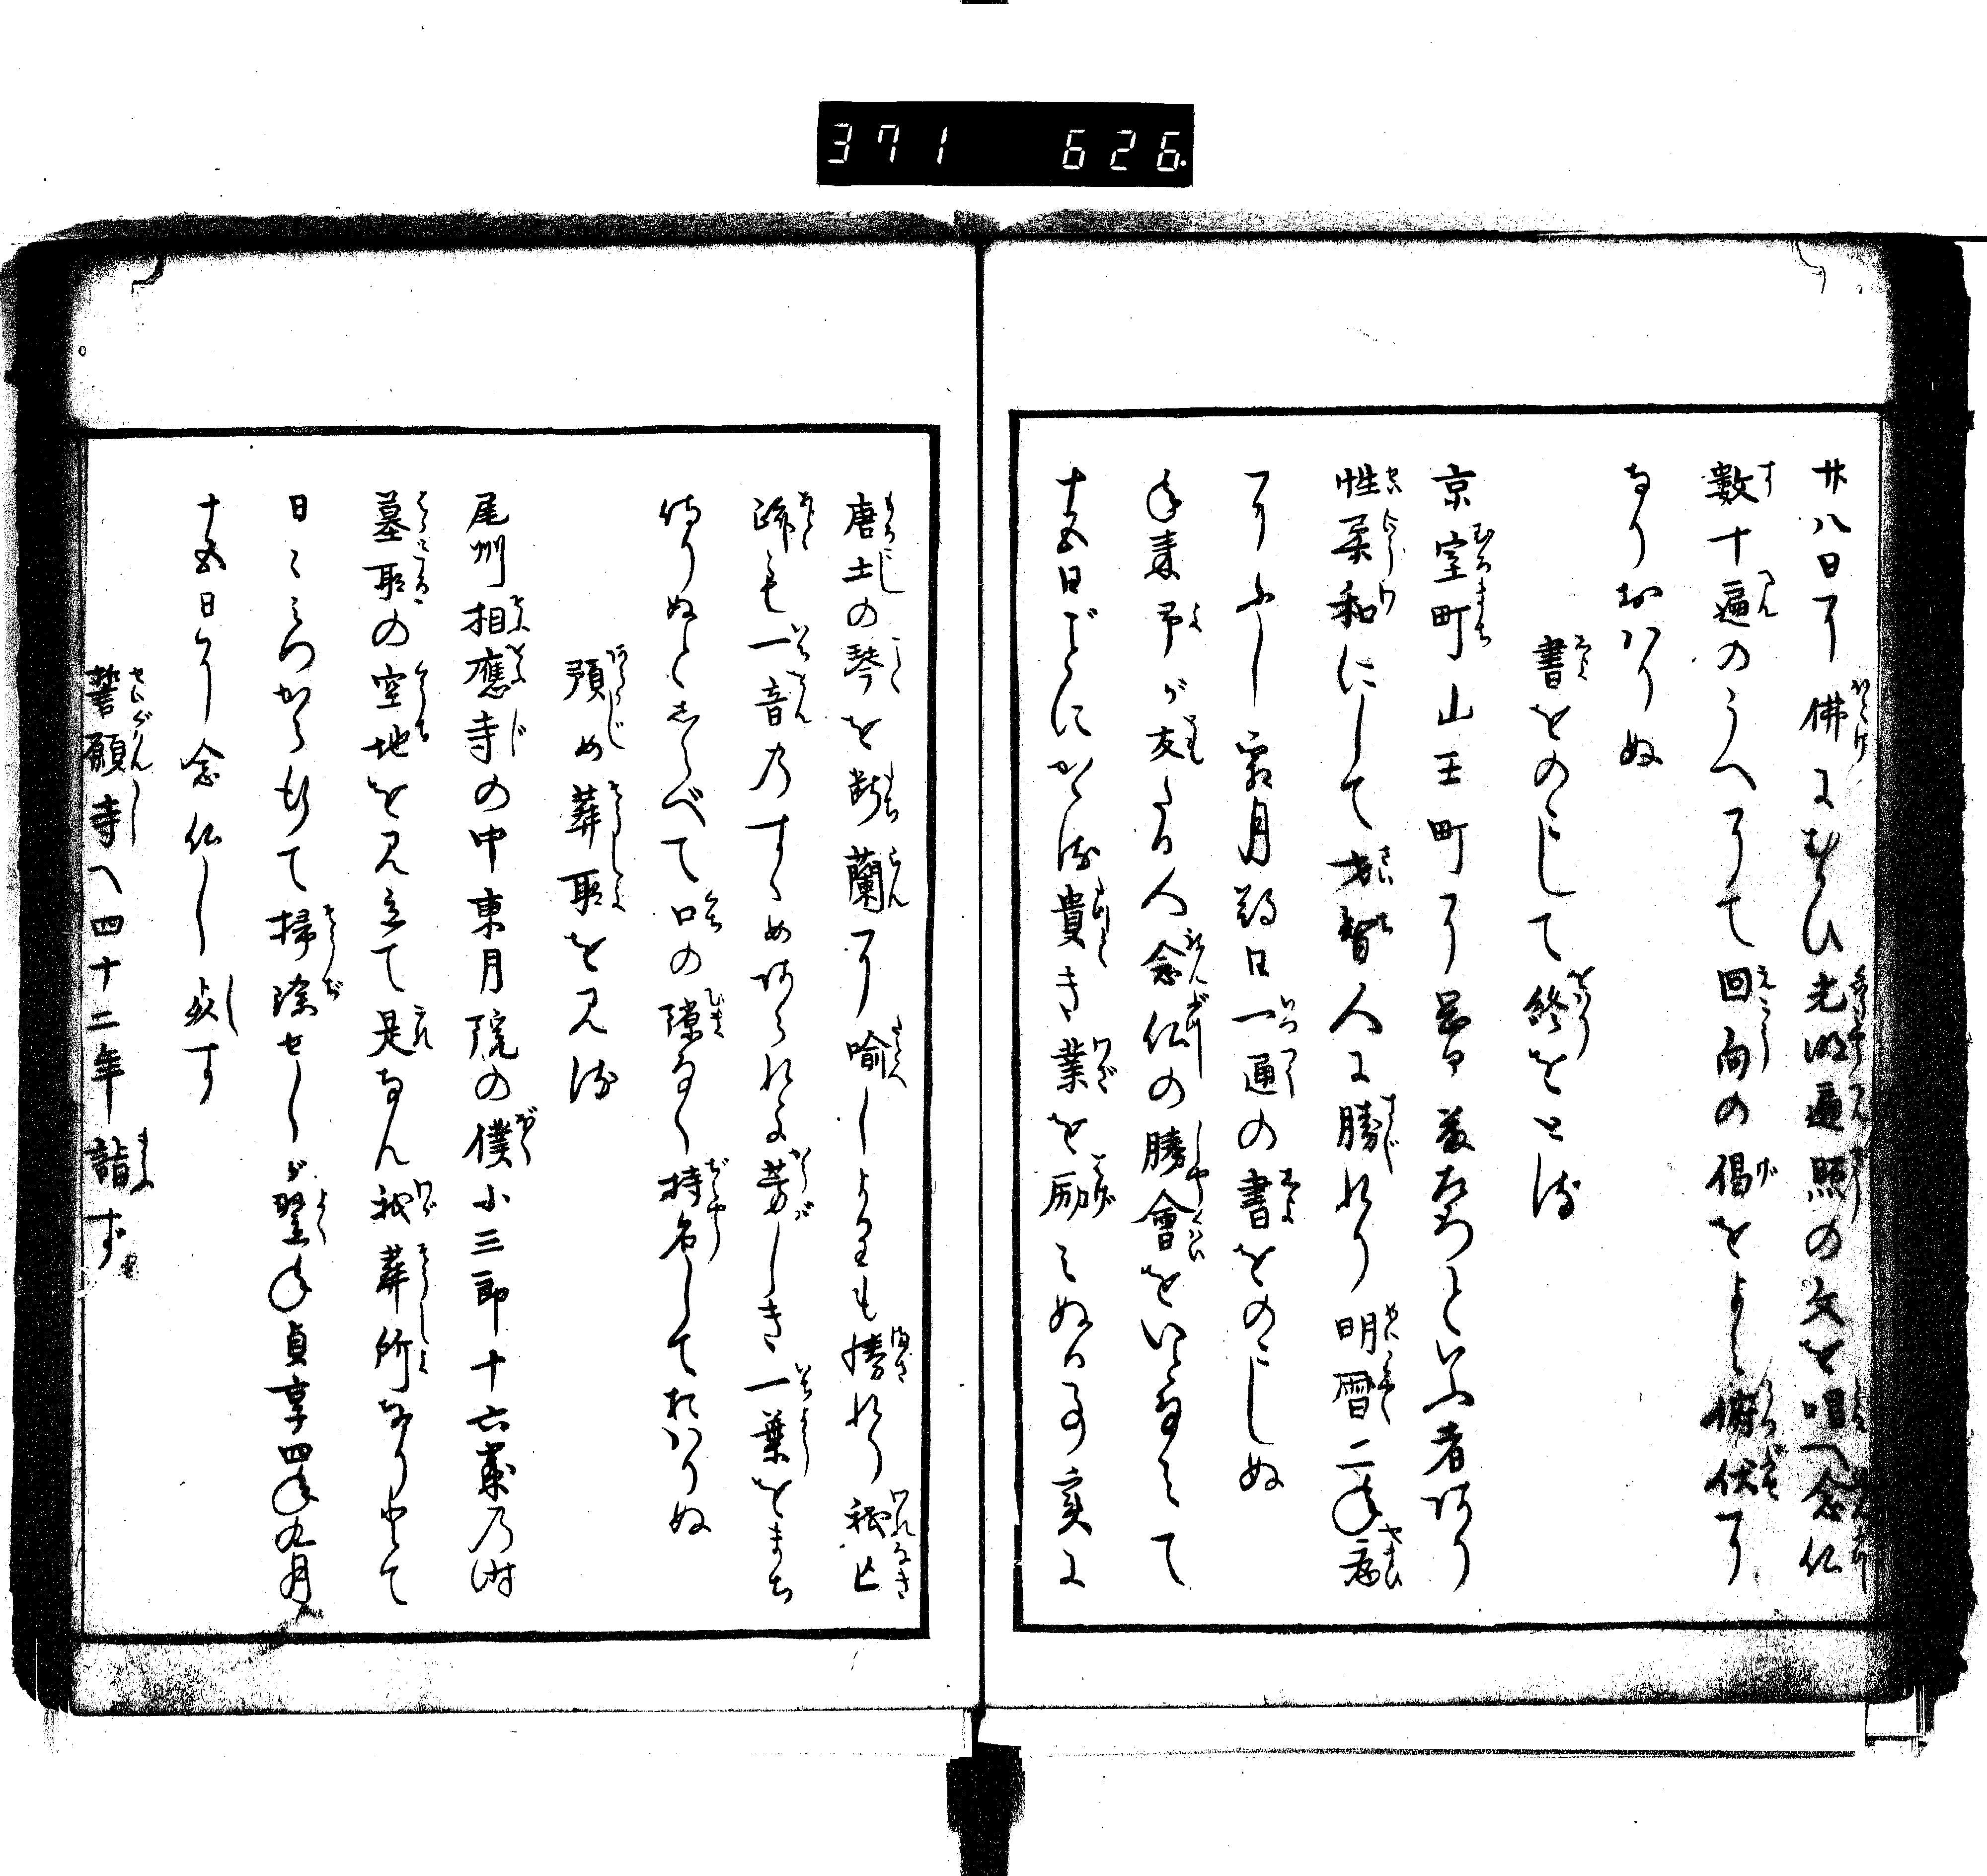 371 626
廿八日に佛にむかひ光明遍照の文を唱へ念仏
數十遍のうへにて回向の偈をよみ俯伏に
なりおハりぬ
書をのこして終をとる
京室町山王町に
といふ者あり
性柔和にして才智人に勝れり明暦二年病
にふし霜月朔日一通の書をのこしぬ
年来予が友たる人念仏の勝會をいとなみて
十五日ごとにかゝる貴き業を励みぬる事実に
唐土の琴を断蘭に喩しよりも勝れり我亡
跡にも一音のすゝめあられよ芳しき一葉をまち
侍りぬとしらべて口の隙なく持名しておハりぬ
預め葬所を見る
尾州相應寺の中東月院の僕小三郎十六歳の時
墓所の空地を見立て是なん我葬所なりとて
日ゝみづから行て掃除せしが翌年貞享四年九月
十五日に念仏し死す
誓願寺へ四十二年詣ず